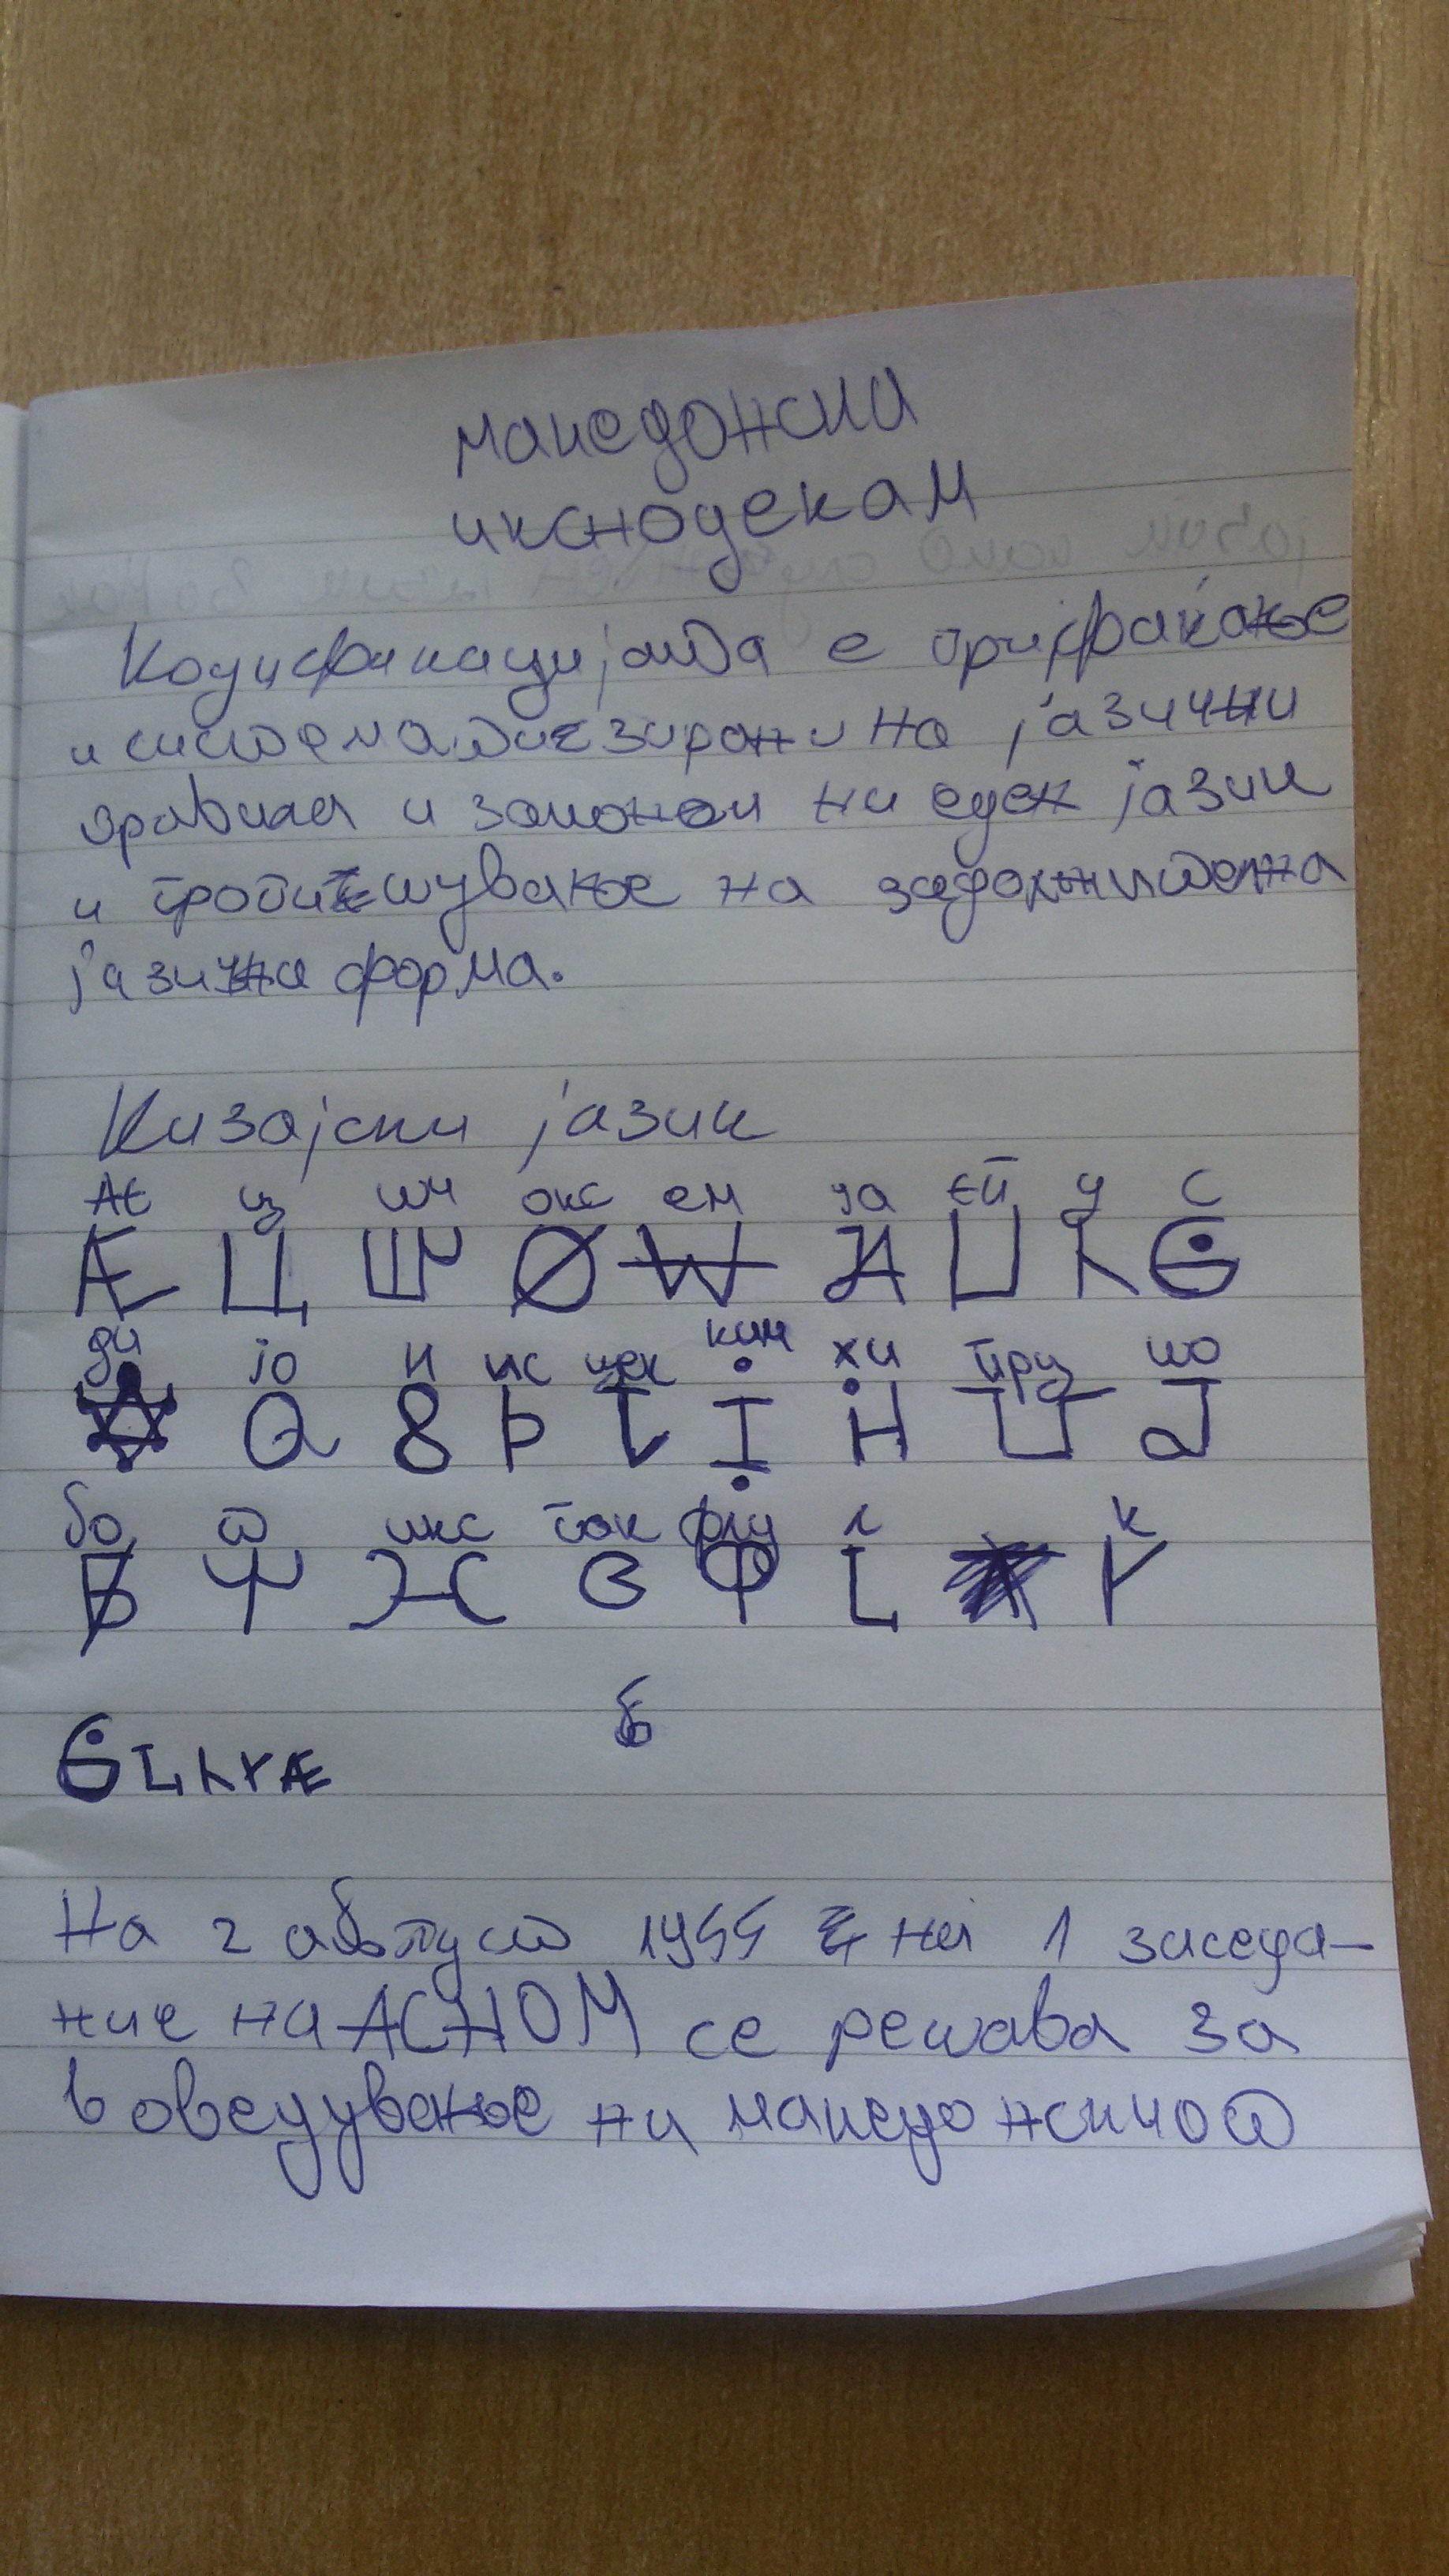 македонски
икснодекам
Кодификацијата е прифаќање
и систематизирани на јазични
правила и закони на еден јазик
и пропишување на задолжителна
јазични форма.
Кизајски јазик
АЄ ц шч окс ем ја єй у с
Æ Ц Ø W
ди јо и ис цек ким хи при шо
Q 8 Þ I H
бо т икс пок флу л к
Ф L
б
На 2 август 1944 на 1 заседа-
ние на АСНОМ се решава за
воведување на македонскиот